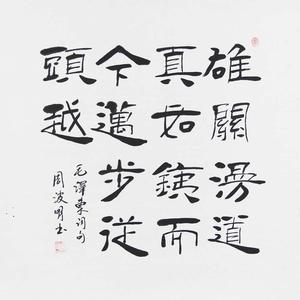 雄關漫道
真如銕而
今邁步從
頭越
毛澤東詞句
周明书